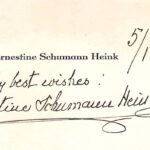 5/1
Ernestine Schumann Heink
best wishes:
tine Schumann Hein